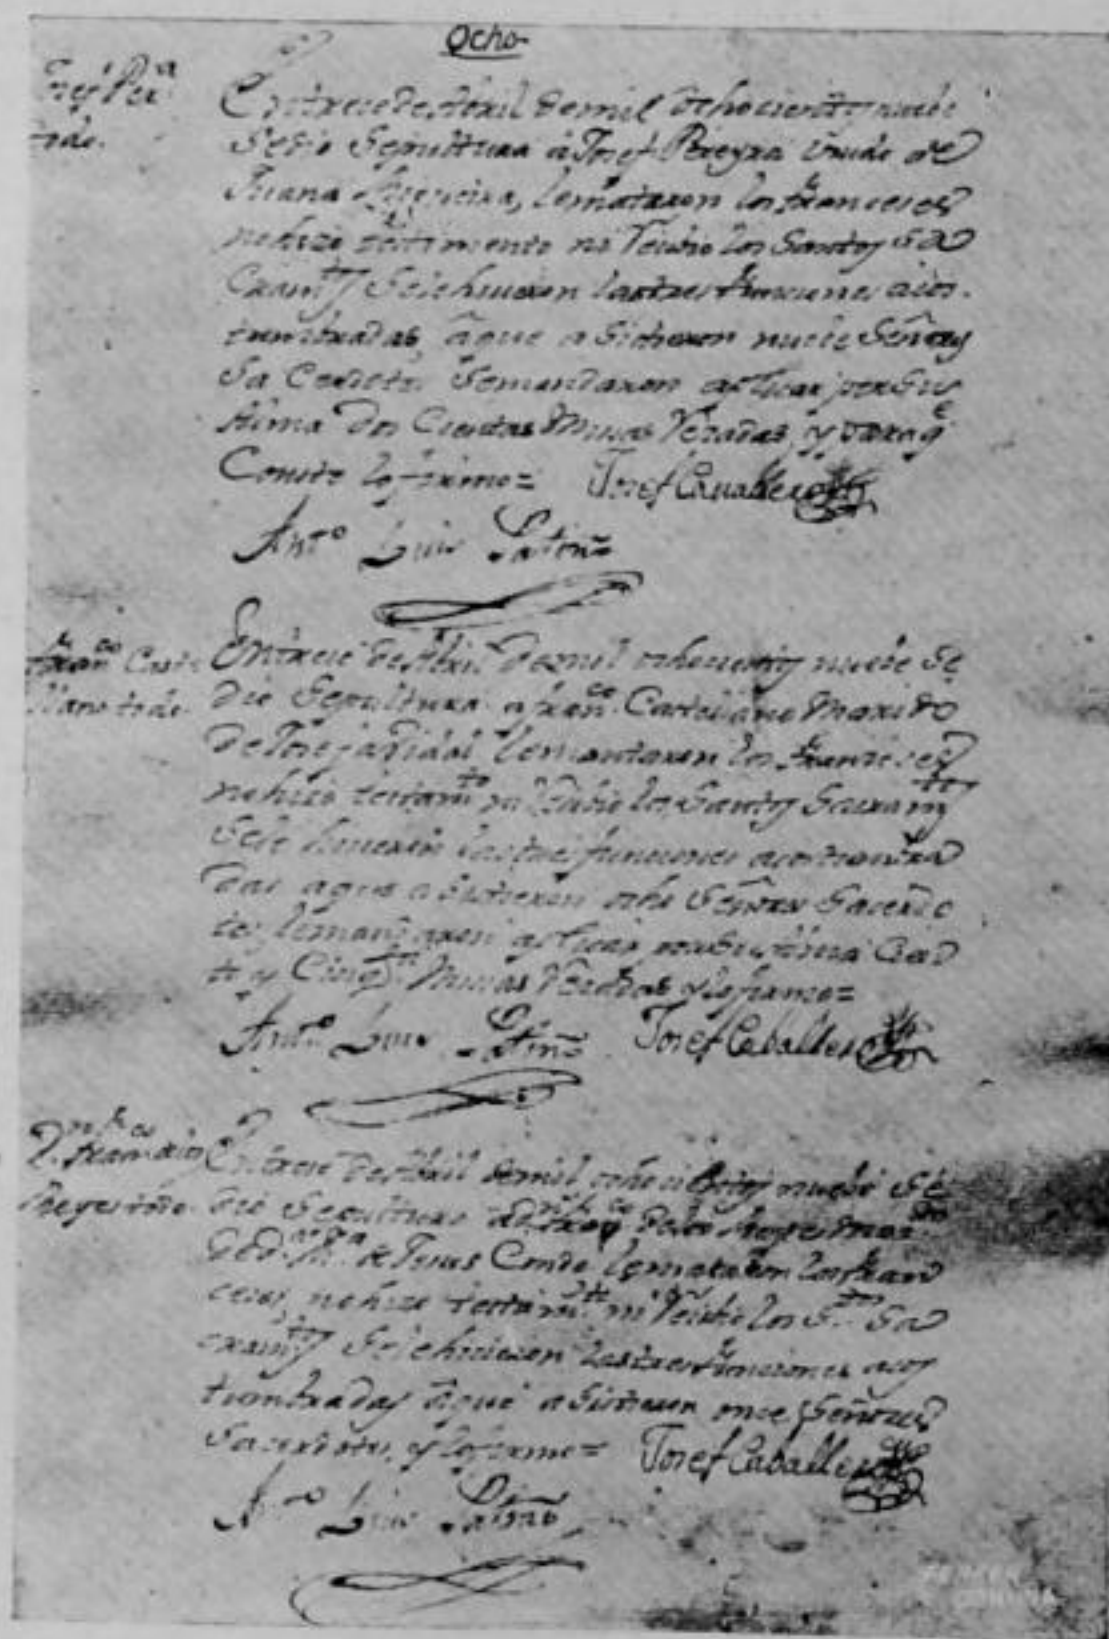 Ocho
todo.
En trece de Abril de mil ochocientos nuebe
Se dio Sepulttura â Josef Pereyra viudo de
Juana, le mataron los franceses
no hizo testtimento ni Recivio los Santtos Sa
cramtos Se le hicieron las tres funciones acos
tumbradas, â que asistieron nuebe Señores
Sacerdots Se mandaron aplicar por su
Alma Dos Cientas Misas Rezadas, y para qe
Conste lo firmo= Josef Caualleros
Antto Luis Patiño
Franco Caste
llano todo
En trece de Abril de mil ochocientos nuebe Se
dio Sepultura a Franco Castellano Marido
de Josefa Vidal le mataron los Franceses
no hizo testamto ni Recibio los Santtos Sacramtos
Se le hicieron las tres funciones acostumbra
das a que asistieron ocho Señores Sacerdo
tes, le mandaron aplicar por su Alma Cien
tt y Cinqtta Misas Rezadas y lo firmo=
Antto Luis Patiño Josef Caballero
Dn Franco
En trece de Abril de mil ochocientos nuebe Se
dio Sepulttura a Dn Franco de los Mari
do de Da Ma de Jesus Conde le mataron los Fran
ceses, no hizo testtamtto ni Recibio los Stos Sa
cramtos Se le hicieron las tres funciones acos
tumbradas â que asistieron once Señores
Sacerdotes, y lo firmo= Josef Caballero
Anto Luis Patiño